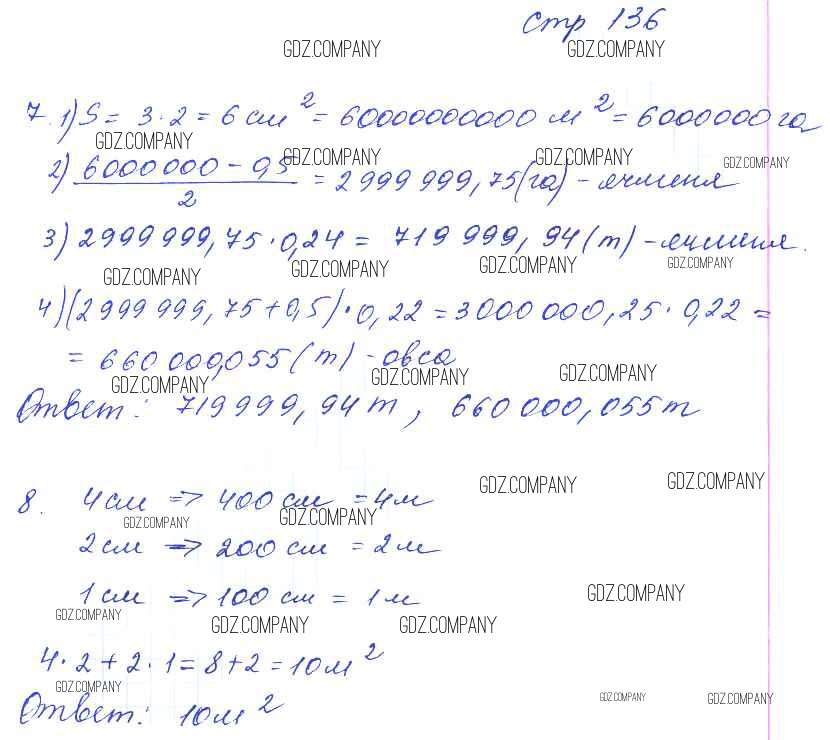 стр 136
GDZ.COMPANY GDZ.COMPANY
7. 1) S = 3·2 = 6 см² = 60000000000 м² = 6000000 га
GDZ.COMPANY GDZ.COMPANY GDZ.COMPANY GDZ.COMPANY
2) (6000000 - 0,5)/2 = 2999999,75 (га) - ячменя
3) 2999999,75 · 0,24 = 719999,94 (т) - ячменя.
GDZ.COMPANY GDZ.COMPANY GDZ.COMPANY GDZ.COMPANY
4) (2999999,75 + 0,5) · 0,22 = 3000000,25 · 0,22 =
= 660000,055 (т) - овса
GDZ.COMPANY GDZ.COMPANY GDZ.COMPANY
Ответ: 719999,94 т, 660000,055 т
GDZ.COMPANY GDZ.COMPANY
8. 4 см => 400 см = 4 м
GDZ.COMPANY GDZ.COMPANY
2 см => 200 см = 2 м
1 см => 100 см = 1 м
GDZ.COMPANY GDZ.COMPANY
GDZ.COMPANY GDZ.COMPANY
4·2 + 2·1 = 8 + 2 = 10 м²
GDZ.COMPANY GDZ.COMPANY GDZ.COMPANY
Ответ: 10 м²